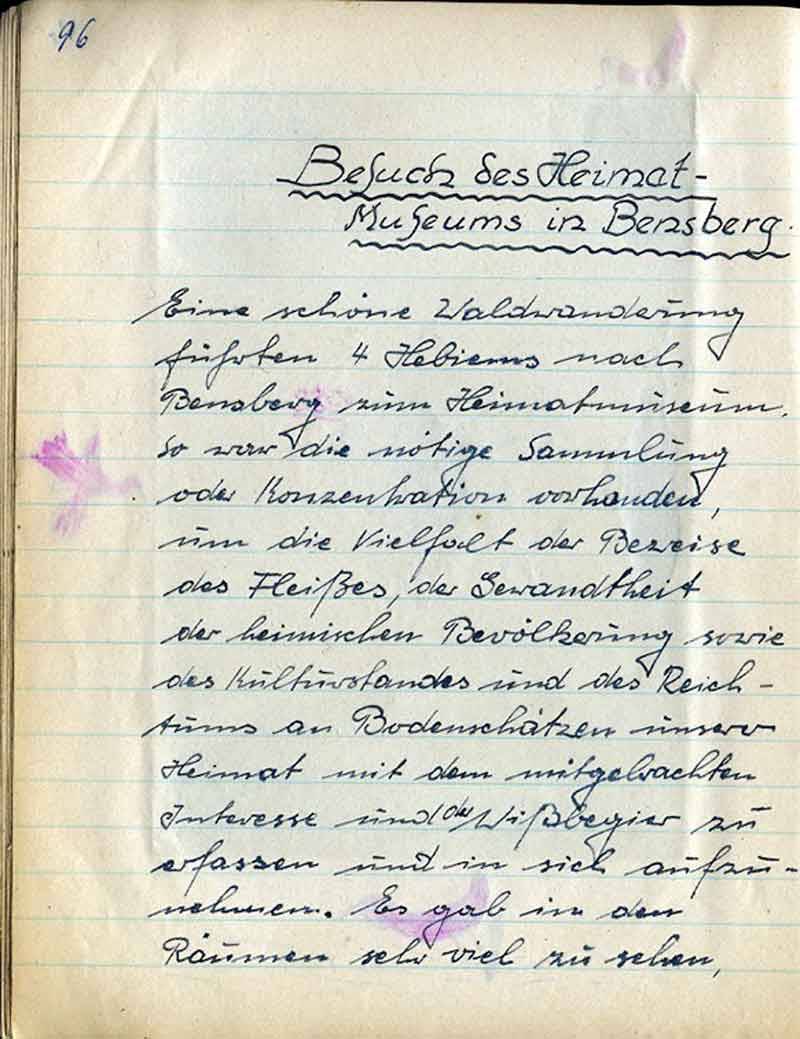 96
Besuch des Heimat-
Museums in Bensberg.
Eine schöne Waldwanderung
führten 4 Hebiems nach
Bensberg zum Heimatmuseum.
So war die nötige Sammlung
oder Konzentration vorhanden,
um die Vielfalt der Beweise
des Fleißes, der Gewandtheit
der heimischen Bevölkerung sowie
des Kulturstandes und des Reich-
tums an Bodenschätzen unserer
Heimat mit dem mitgebrachten
Interesse und der Wißbegier zu
erfassen und in sich aufzu-
nehmen. Es gab in den
Räumen sehr viel zu sehen,